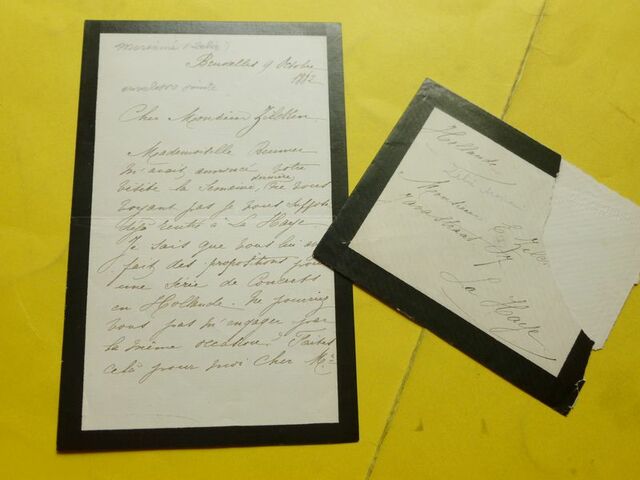 Bruxelles 9 Octobre
1882
enveloppe jointe
Cher Monsieur Zilcken
Mademoiselle
m'avait annoncé votre
visite la semaine dernière, ne vous
voyant pas je vous suppose
déjà rentré à La Haye
Je sais que vous lui
fait des propositions pour
une Série de Concerts
en Hollande. Ne pourriez
vous pas m'engager par
la même occasion? Faites
celà pour moi Cher Mr
Hollande
Monsieur
Javastraat
La Haye